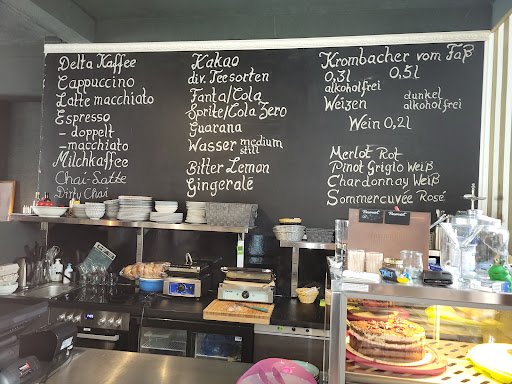 Delta Kaffee
Cappuccino
Latte macchiato
Espresso
- doppelt
- macchiato
Milchkaffee
Chai-Latte
Dirty Chai
Kakao
div. Teesorten
Fanta/Cola
Sprite/Cola Zero
Guarana
Wasser medium
still
Bitter Lemon
Gingeralé
Krombacher vom Faß
0,3l 0,5l
alkoholfrei
Weizen dunkel
alkoholfrei
Wein 0,2l
Merlot Rot
Pinot Grigio Weiß
Chardonnay Weiß
Sommercuvée Rosé